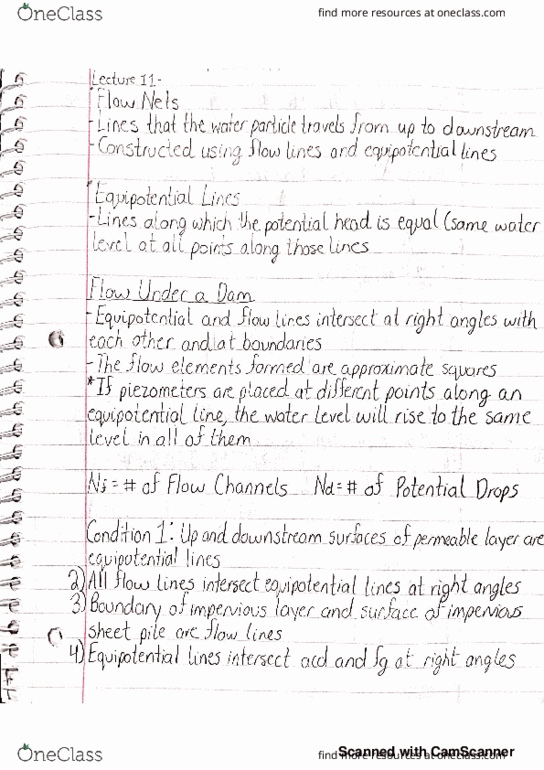 OneClass
find more resources at oneclass.com
Lecture 11-
*Flow Nets
-Lines that the water particle travels from up to downstream
-Constructed using flow lines and equipotential lines
*Equipotential Lines
-Lines along which the potential head is equal (same water
level at all points along those lines
Flow Under a Dam
-Equipotential and flow lines intersect at right angles with
each other and at boundaries
-The flow elements formed are approximate squares
*If piezometers are placed at different points along an
equipotential line, the water level will rise to the same
level in all of them
Nf = # of Flow Channels Nd = # of Potential Drops
Condition 1: Up and downstream surfaces of permeable layer are
equipotential lines
2) All flow lines intersect equipotential lines at right angles
3) Boundary of impervious layer and surface of impervious
sheet pile are flow lines
4) Equipotential lines intersect acd and fg at right angles
OneClass
find more resources at oneclass.com
Scanned with CamScanner